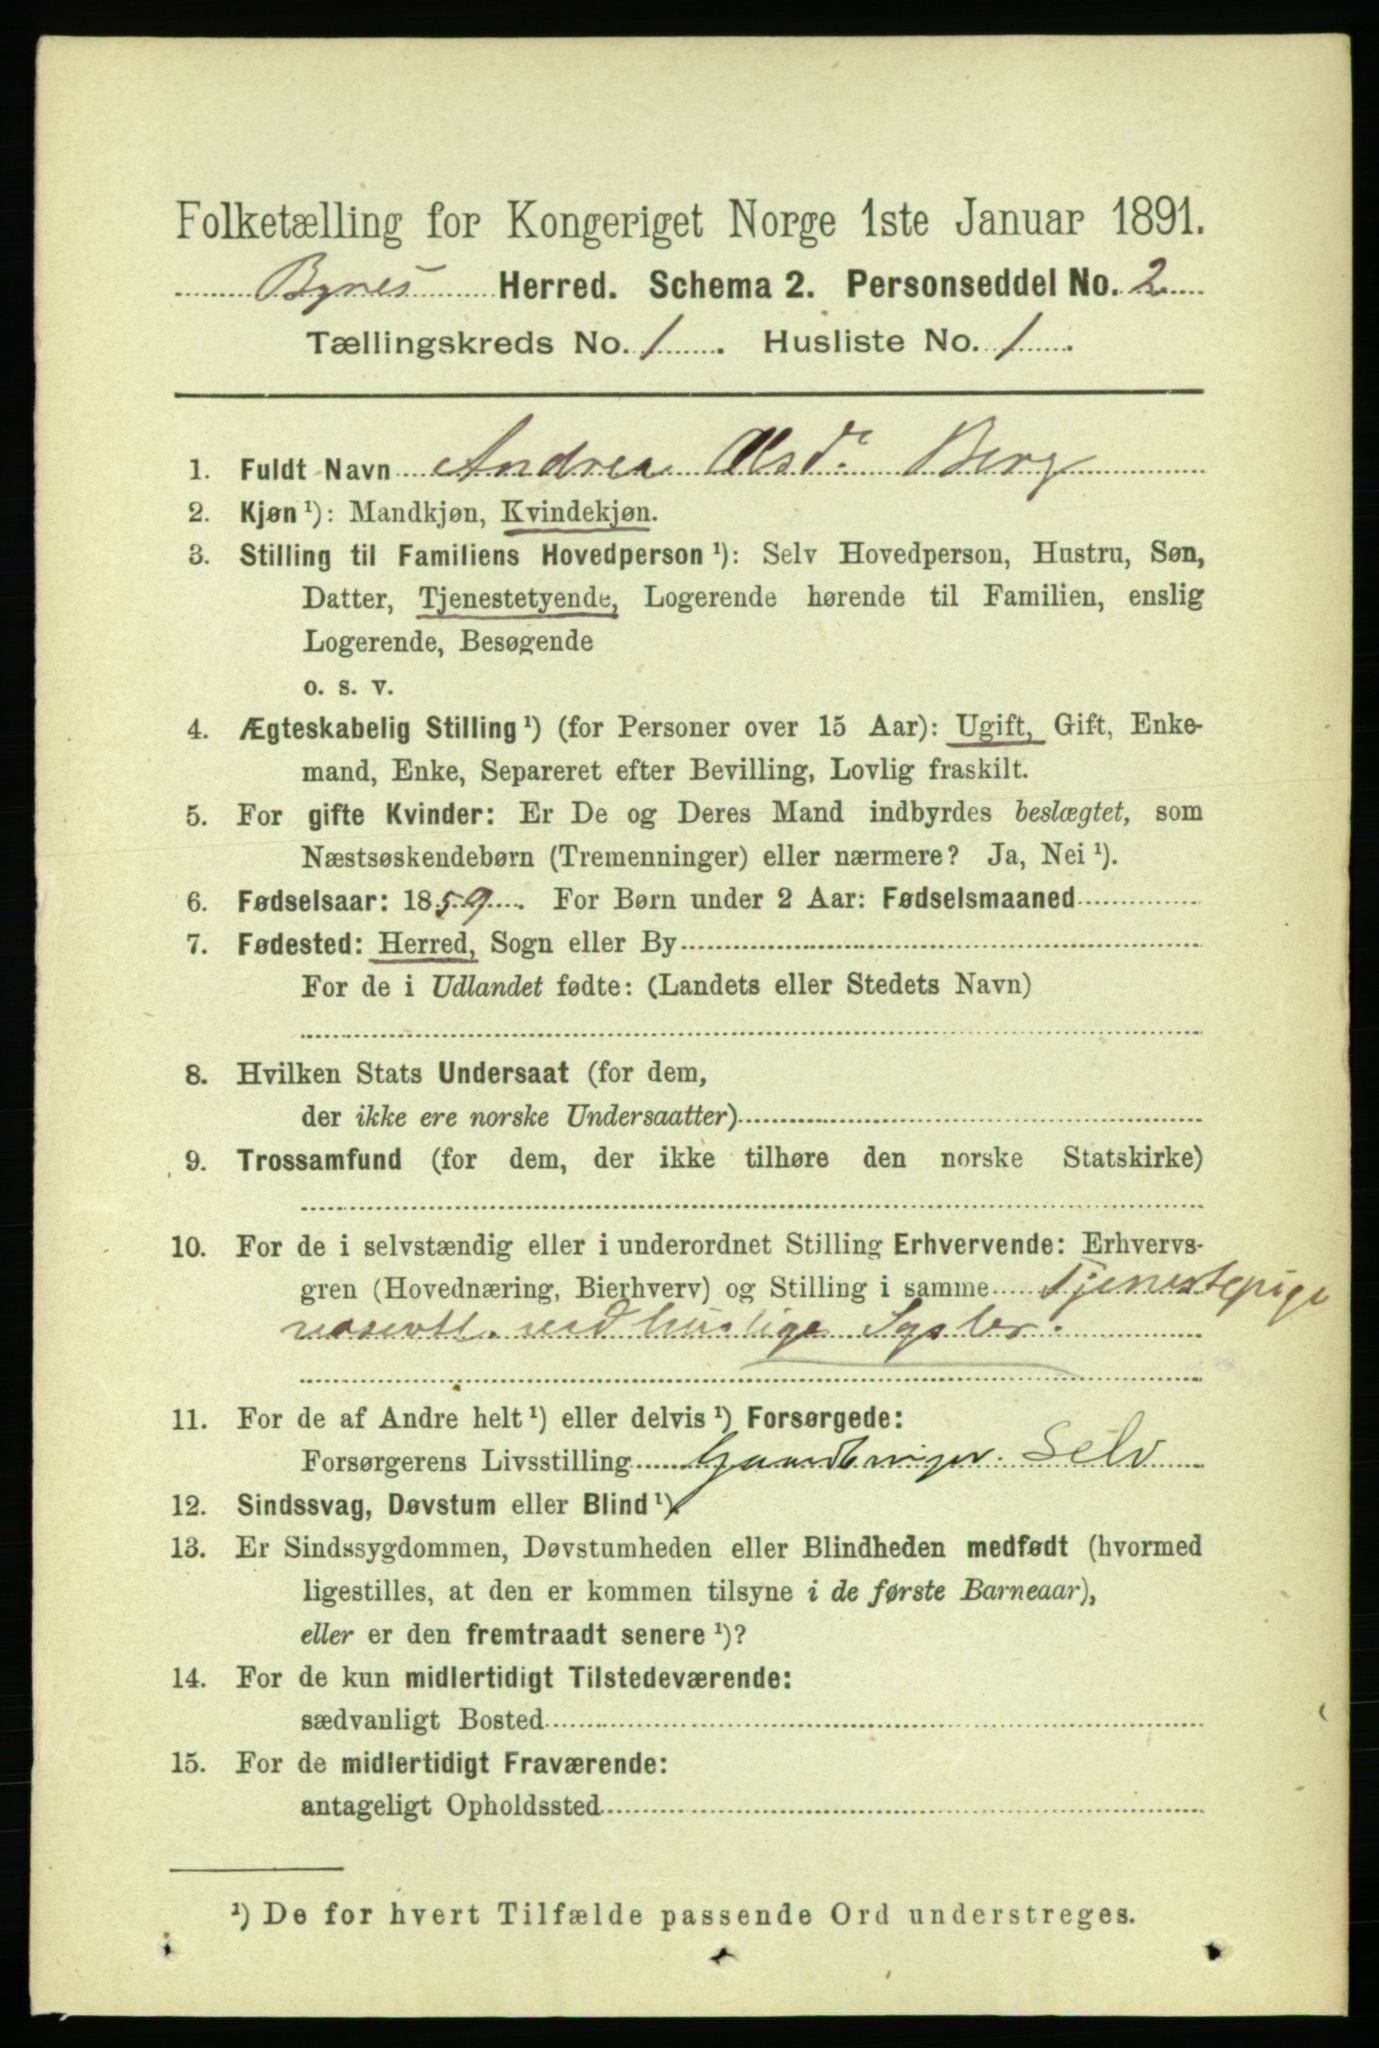 Folketælling for Kongeriget Norge 1ste Januar 1891.
Bynes Herred. Schema 2. Personseddel No. 2
Tællingskreds No. 1. Husliste No. 1.
1. Fuldt Navn Andrea Olsd. Berg
2. Kjøn ¹): Mandkjøn, Kvindekjøn.
3. Stilling til Familiens Hovedperson ¹): Selv Hovedperson, Hustru, Søn,
Datter, Tjenestetyende, Logerende hørende til Familien, enslig
Logerende, Besøgende
o. s. v.
4. Ægteskabelig Stilling ¹) (for Personer over 15 Aar): Ugift, Gift, Enke-
mand, Enke, Separeret efter Bevilling, Lovlig fraskilt.
5. For gifte Kvinder: Er De og Deres Mand indbyrdes beslægtet, som
Næstsøskendebørn (Tremenninger) eller nærmere? Ja, Nei ¹).
6. Fødselsaar: 1859. For Børn under 2 Aar: Fødselsmaaned
7. Fødested: Herred, Sogn eller By
For de i Udlandet fødte: (Landets eller Stedets Navn)
8. Hvilken Stats Undersaat (for dem,
der ikke ere norske Undersaatter)
9. Trossamfund (for dem, der ikke tilhøre den norske Statskirke)
10. For de i selvstændig eller i underordnet Stilling Erhvervende: Erhvervs-
gren (Hovednæring, Bierhverv) og Stilling i samme Tjenestepige
ved huslige Sysler.
11. For de af Andre helt ¹) eller delvis ¹) Forsørgede:
Forsørgerens Livsstilling Gaardbruger. Selv
12. Sindssvag, Døvstum eller Blind ¹).
13. Er Sindssygdommen, Døvstumheden eller Blindheden medfødt (hvormed
ligestilles, at den er kommen tilsyne i de første Barneaar),
eller er den fremtraadt senere ¹)?
14. For de kun midlertidigt Tilstedeværende:
sædvanligt Bosted
15. For de midlertidigt Fraværende:
antageligt Opholdssted
¹) De for hvert Tilfælde passende Ord understreges.